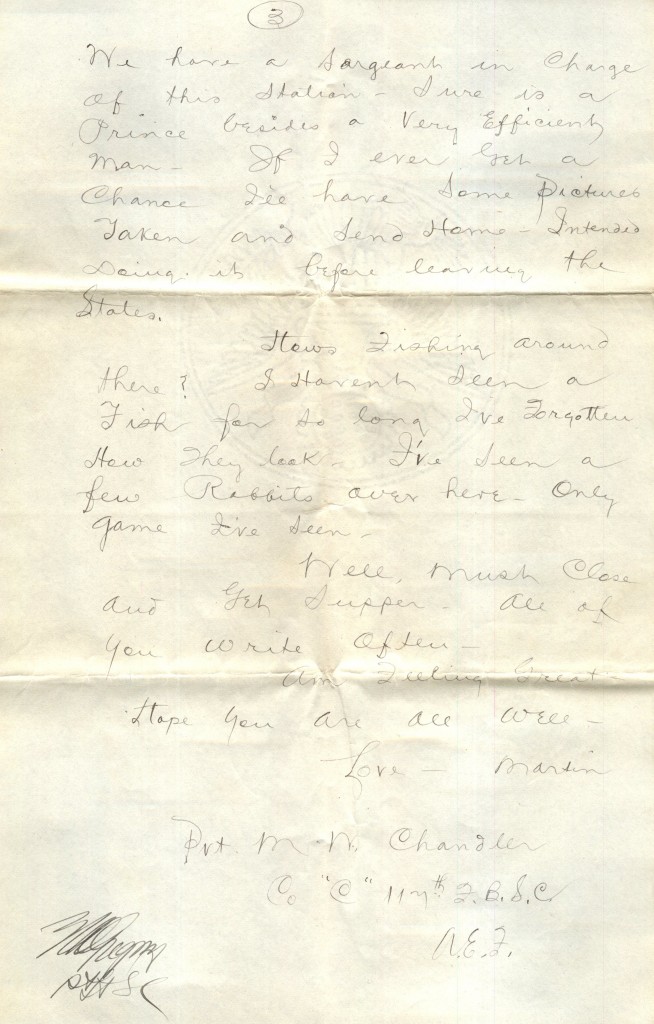 3
We have a Sargeant in Charge
of this Station - Sure is a
Prince besides a Very Efficient
Man - If I ever Get a
Chance I'll have Some Pictures
Taken and Send Home - Intended
Doing it before leaving the
States.
Hows Fishing around
there? I Havent Seen a
Fish for so long I've Forgotten
How They look - I've Seen a
few Rabbits over here - Only
game I've Seen -
Well, Must Close
and Get Supper - All of
You Write Often -
Am Feeling Great -
Hope You are all Well -
Love - Martin
Pvt. M. W. Chandler
Co "C" 117th F.B.S.C.
A.E.F.